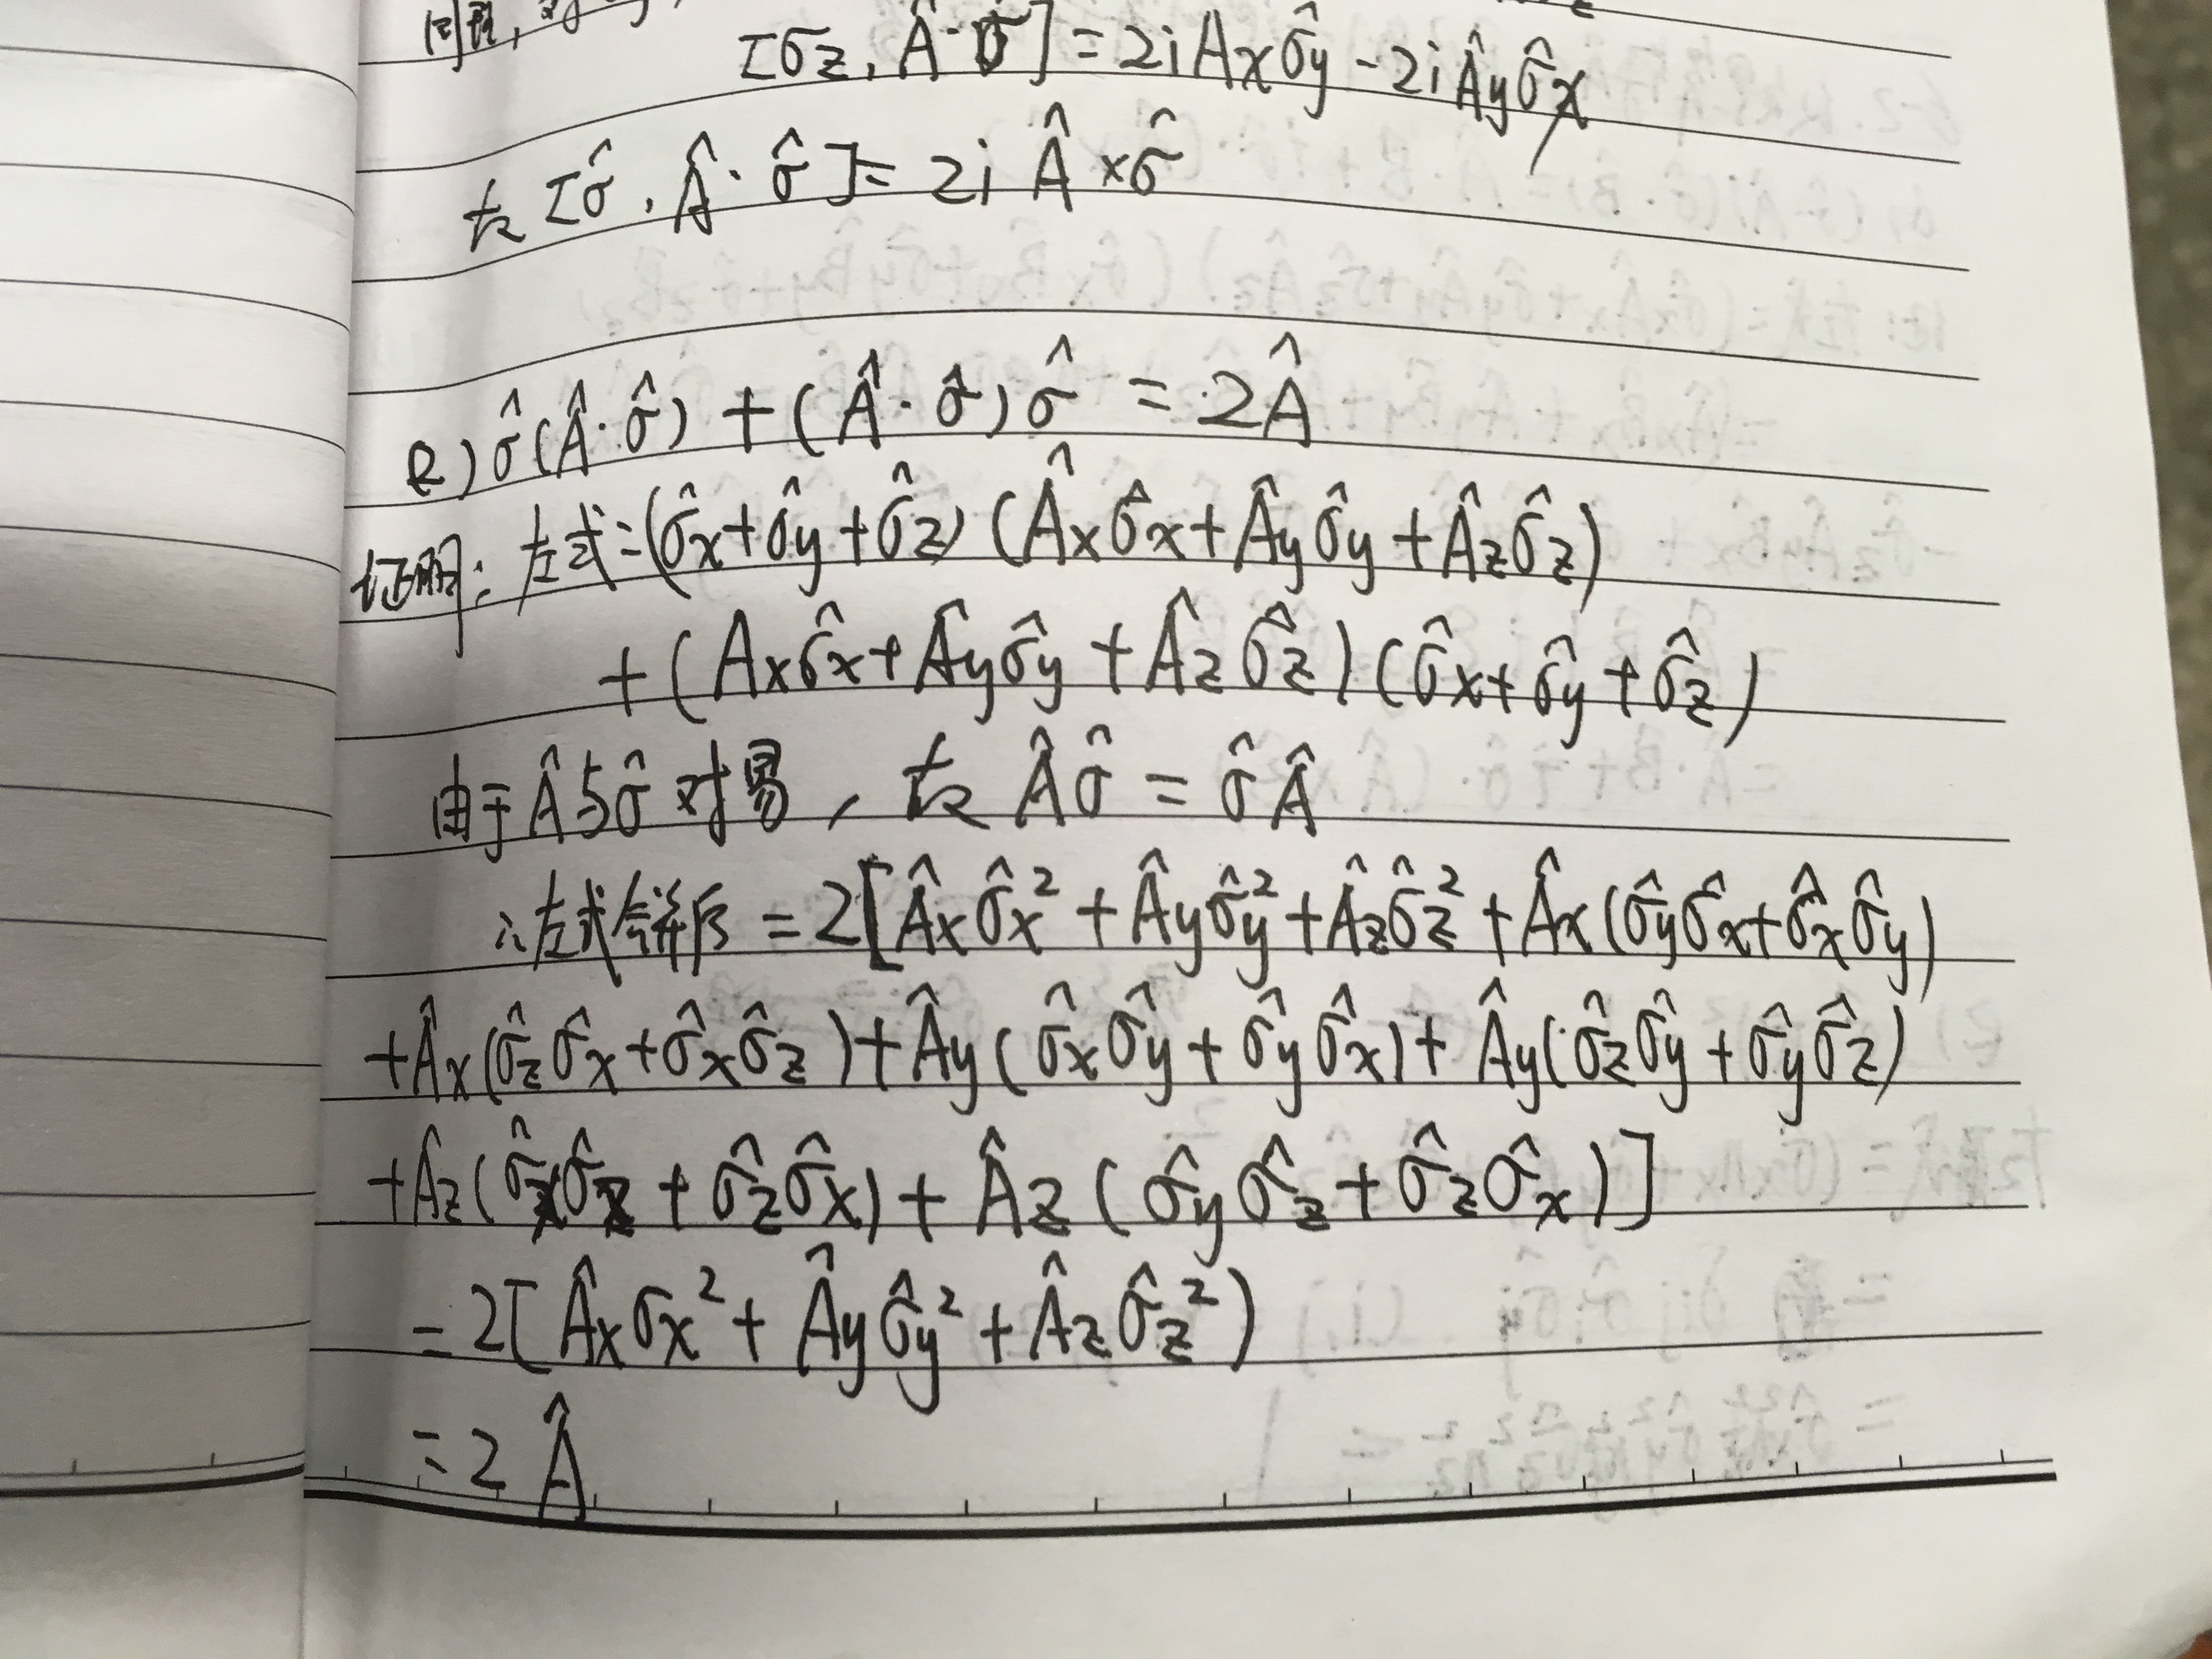 同理,
[σz, Â·σ̂] = 2iAxσ̂y - 2iÂyσ̂x
故 [σ̂, Â·σ̂] = 2i Â×σ̂
2) σ̂(Â·σ̂) + (Â·σ̂)σ̂ = 2Â
证明: 左式=(σ̂x+σ̂y+σ̂z)(Âxσ̂x+Âyσ̂y+Âzσ̂z)
+(Axσ̂x+Âyσ̂y+Âzσ̂z)(σ̂x+σ̂y+σ̂z)
由于Â与σ̂对易, 故 Âσ̂ = σ̂Â
∴左式合并后 = 2[Âxσ̂x²+Âyσ̂y²+Âzσ̂z²+Âx(σ̂yσ̂x+σ̂xσ̂y)
+Âx(σ̂zσ̂x+σ̂xσ̂z)+Ây(σ̂xσ̂y+σ̂yσ̂x)+Ây(σ̂zσ̂y+σ̂yσ̂z)
+Âz(σ̂xσ̂z+σ̂zσ̂x)+Âz(σ̂yσ̂z+σ̂zσ̂x)]
=2[Âxσx²+Âyσ̂y²+Âzσ̂z²)
=2Â